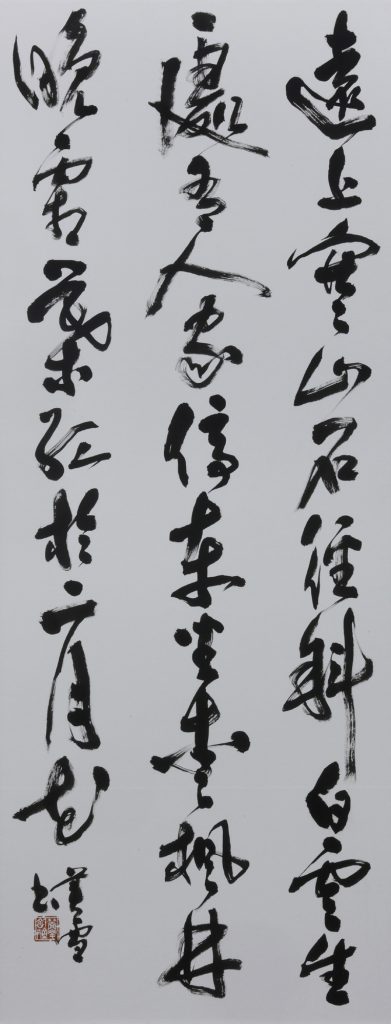 遠上寒山石徑斜白雲生
處有人家停車坐愛楓林
晚霜葉紅於二月花
雪書